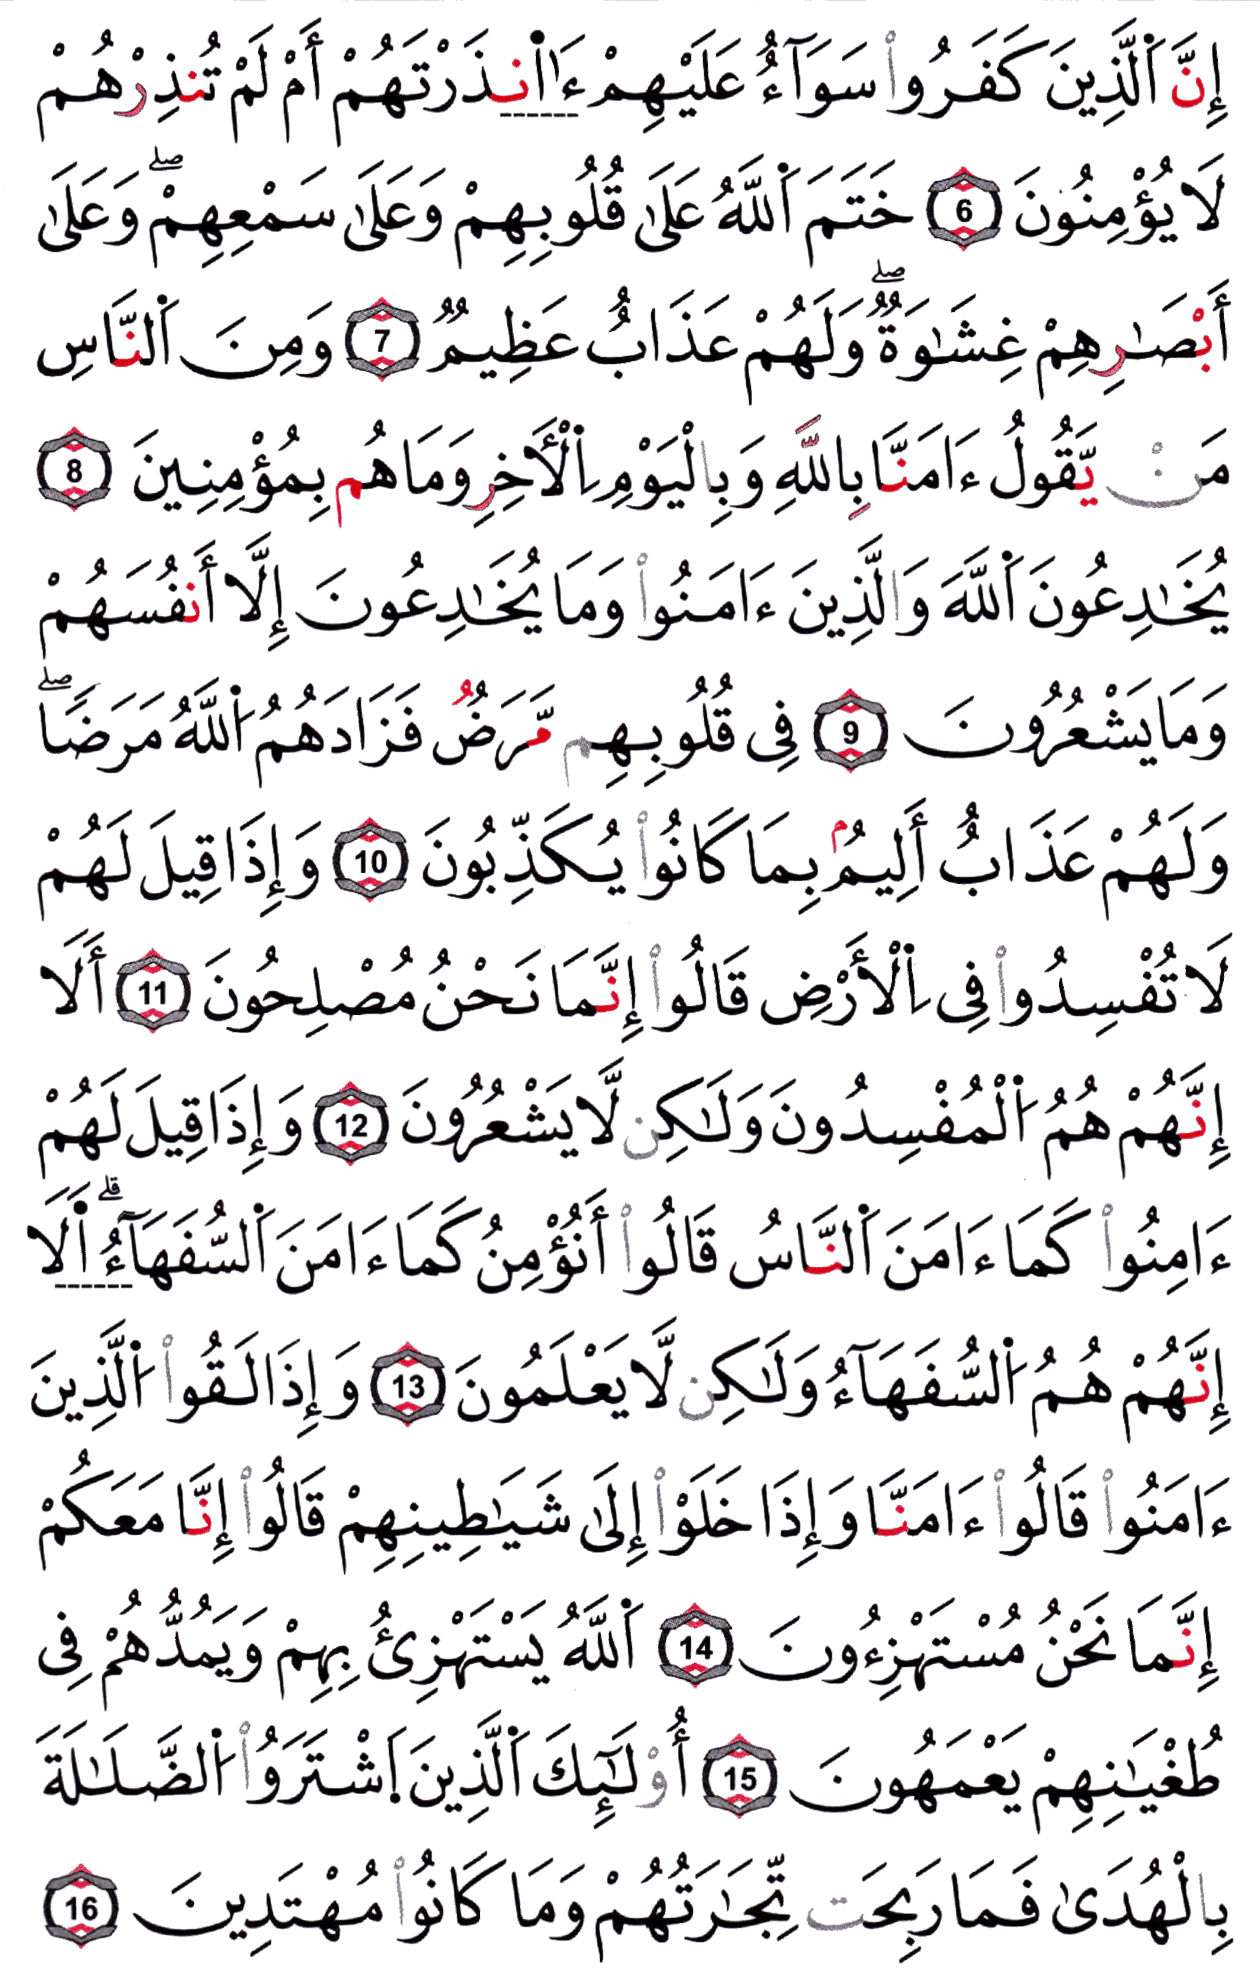 إِنَّ اَ۬لَّذِينَ كَفَرُواْ سَوَآءٌ عَلَيْهِمْ ءَاٰنذَرْتَهُمْ أَمْ لَمْ تُنذِرْهُمْ
لَا يُؤْمِنُونَ 6 خَتَمَ اَ۬للَّهُ عَلَىٰ قُلُوبِهِمْ وَعَلَىٰ سَمْعِهِمْۖ وَعَلَىٰ
أَبْصَٰرِهِمْ غِشَٰوَةٌۖ وَلَهُمْ عَذَابٌ عَظِيمٌ 7 وَمِنَ اَ۬لنَّاسِ
مَنْ يَّقُولُ ءَامَنَّا بِاللَّهِ وَبِالْيَوْمِ اِ۬لْأَخِرِ وَمَا هُم بِمُؤْمِنِينَ 8
يُخَٰدِعُونَ اَ۬للَّهَ وَالَّذِينَ ءَامَنُواْ وَمَا يُخَٰدِعُونَ إِلَّا أَنفُسَهُمْ
وَمَا يَشْعُرُونَ 9 فِى قُلُوبِهِم مَّرَضٌ فَزَادَهُمُ اُ۬للَّهُ مَرَضًاۖ
وَلَهُمْ عَذَابٌ أَلِيمُۢ بِمَا كَانُواْ يُكَذِّبُونَ 10 وَإِذَا قِيلَ لَهُمْ
لَا تُفْسِدُواْ فِى اِ۬لْأَرْضِ قَالُواْ إِنَّمَا نَحْنُ مُصْلِحُونَ 11 أَلَا
إِنَّهُمْ هُمُ اُ۬لْمُفْسِدُونَ وَلَٰكِن لَّا يَشْعُرُونَ 12 وَإِذَا قِيلَ لَهُمْ
ءَامِنُواْ كَمَا ءَامَنَ اَ۬لنَّاسُ قَالُواْ أَنُؤْمِنُ كَمَا ءَامَنَ اَ۬لسُّفَهَآءُۗ اَ۬لَا
إِنَّهُمْ هُمُ اُ۬لسُّفَهَآءُ وَلَٰكِن لَّا يَعْلَمُونَ 13 وَإِذَا لَقُواْ اُ۬لَّذِينَ
ءَامَنُواْ قَالُواْ ءَامَنَّا وَإِذَا خَلَوْاْ إِلَىٰ شَيَٰطِينِهِمْ قَالُواْ إِنَّا مَعَكُمْ
إِنَّمَا نَحْنُ مُسْتَهْزِءُونَ 14 اَ۬للَّهُ يَسْتَهْزِئُ بِهِمْ وَيَمُدُّهُمْ فِى
طُغْيَٰنِهِمْ يَعْمَهُونَ 15 أُوْلَٰٓئِكَ اَ۬لَّذِينَ اَ۪شْتَرَوُاْ اُ۬لضَّلَٰلَةَ
بِالْهُدَىٰ فَمَا رَبِحَت تِّجَٰرَتُهُمْ وَمَا كَانُواْ مُهْتَدِينَ 16